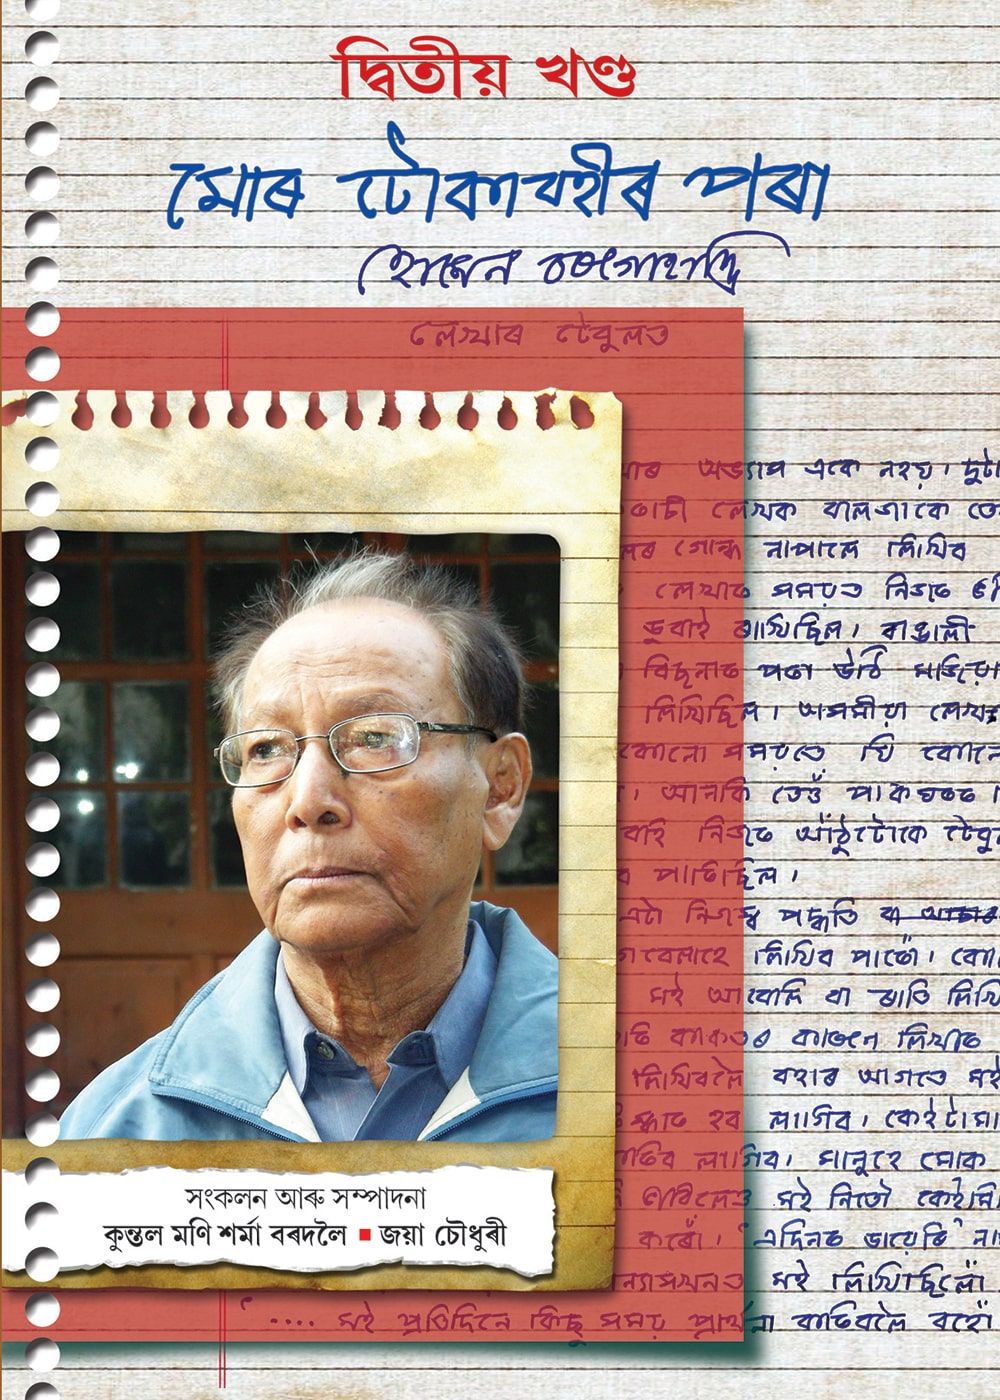 দ্বিতীয় খণ্ড
মোৰ টোকাবহীৰ পৰা
হোমেন বৰগোহাঞি
লেখাৰ টেবুলত
অভ্যাস একে নহয়। দুটা
লেখক বালজাকে
গোন্ধ নাপালে লিখিব
লেখাৰ সময়ত নিজৰ
ডুবাই ৰাখিছিল। বাঙালী
বিছনাত পৰা উঠি
লিখিছিল। অসমীয়া
কোনো সময়তে যি
। আনকি তেওঁ পাকঘৰত
নিজৰ আঁঠুটোকে
পাতিছিল।
এটা নিজস্ব পদ্ধতি বা
লিখিব পাৰোঁ।
মই আবেলি বা ৰাতি
কাকতৰ কাৰণে লিখাত
লিখিবলৈ বহাৰ আগতে মই
হব লাগিব। কেইটামান
লাগিব। মানুহে মোক
মই নিতৌ
কৰোঁ। এদিনত ডায়েৰি
মই লিখিছিলোঁ
.... মই প্ৰতিদিনে কিছু সময় প্ৰাৰ্থনা কৰিবলৈ বহোঁ
সংকলন আৰু সম্পাদনা
কুন্তল মণি শৰ্মা বৰদলৈ ▪ জয়া চৌধুৰী